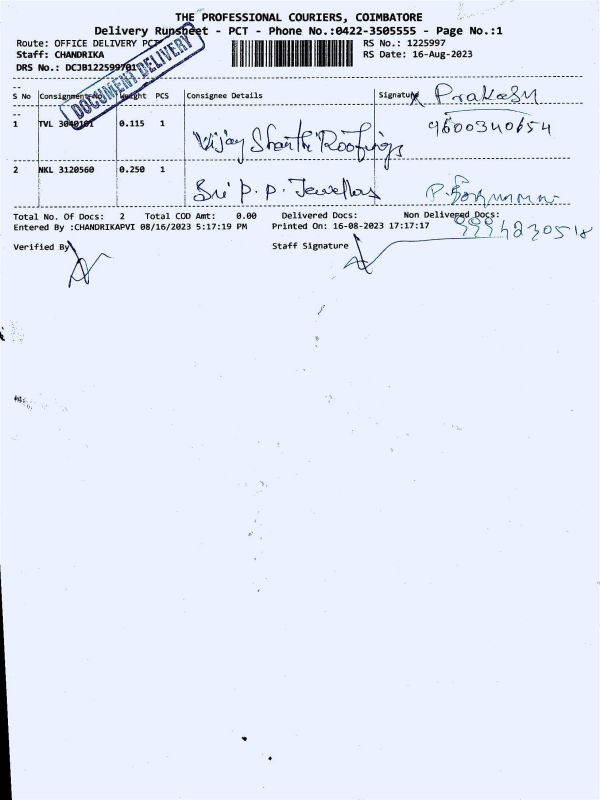 THE PROFESSIONAL COURIERS, COIMBATORE
Delivery Runsheet - PCT - Phone No.:0422-3505555 - Page No.:1
Route: OFFICE DELIVERY PCT
RS No.: 1225997
Staff: CHANDRIKA
RS Date: 16-Aug-2023
DRS No.: DCJB122599701
DOCUMENT DELIVERY
S No Consignment No Weight PCS Consignee Details Signature Prakash
1 TVL 3040101 0.115 1 Vijay Shanthi Roofings 9600340654
2 NKL 3120560 0.250 1 Sri P. P. Jewellers
Total No. Of Docs: 2 Total COD Amt: 0.00 Delivered Docs: Non Delivered Docs:
Entered By :CHANDRIKAPVI 08/16/2023 5:17:19 PM Printed On: 16-08-2023 17:17:17
Verified By Staff Signature